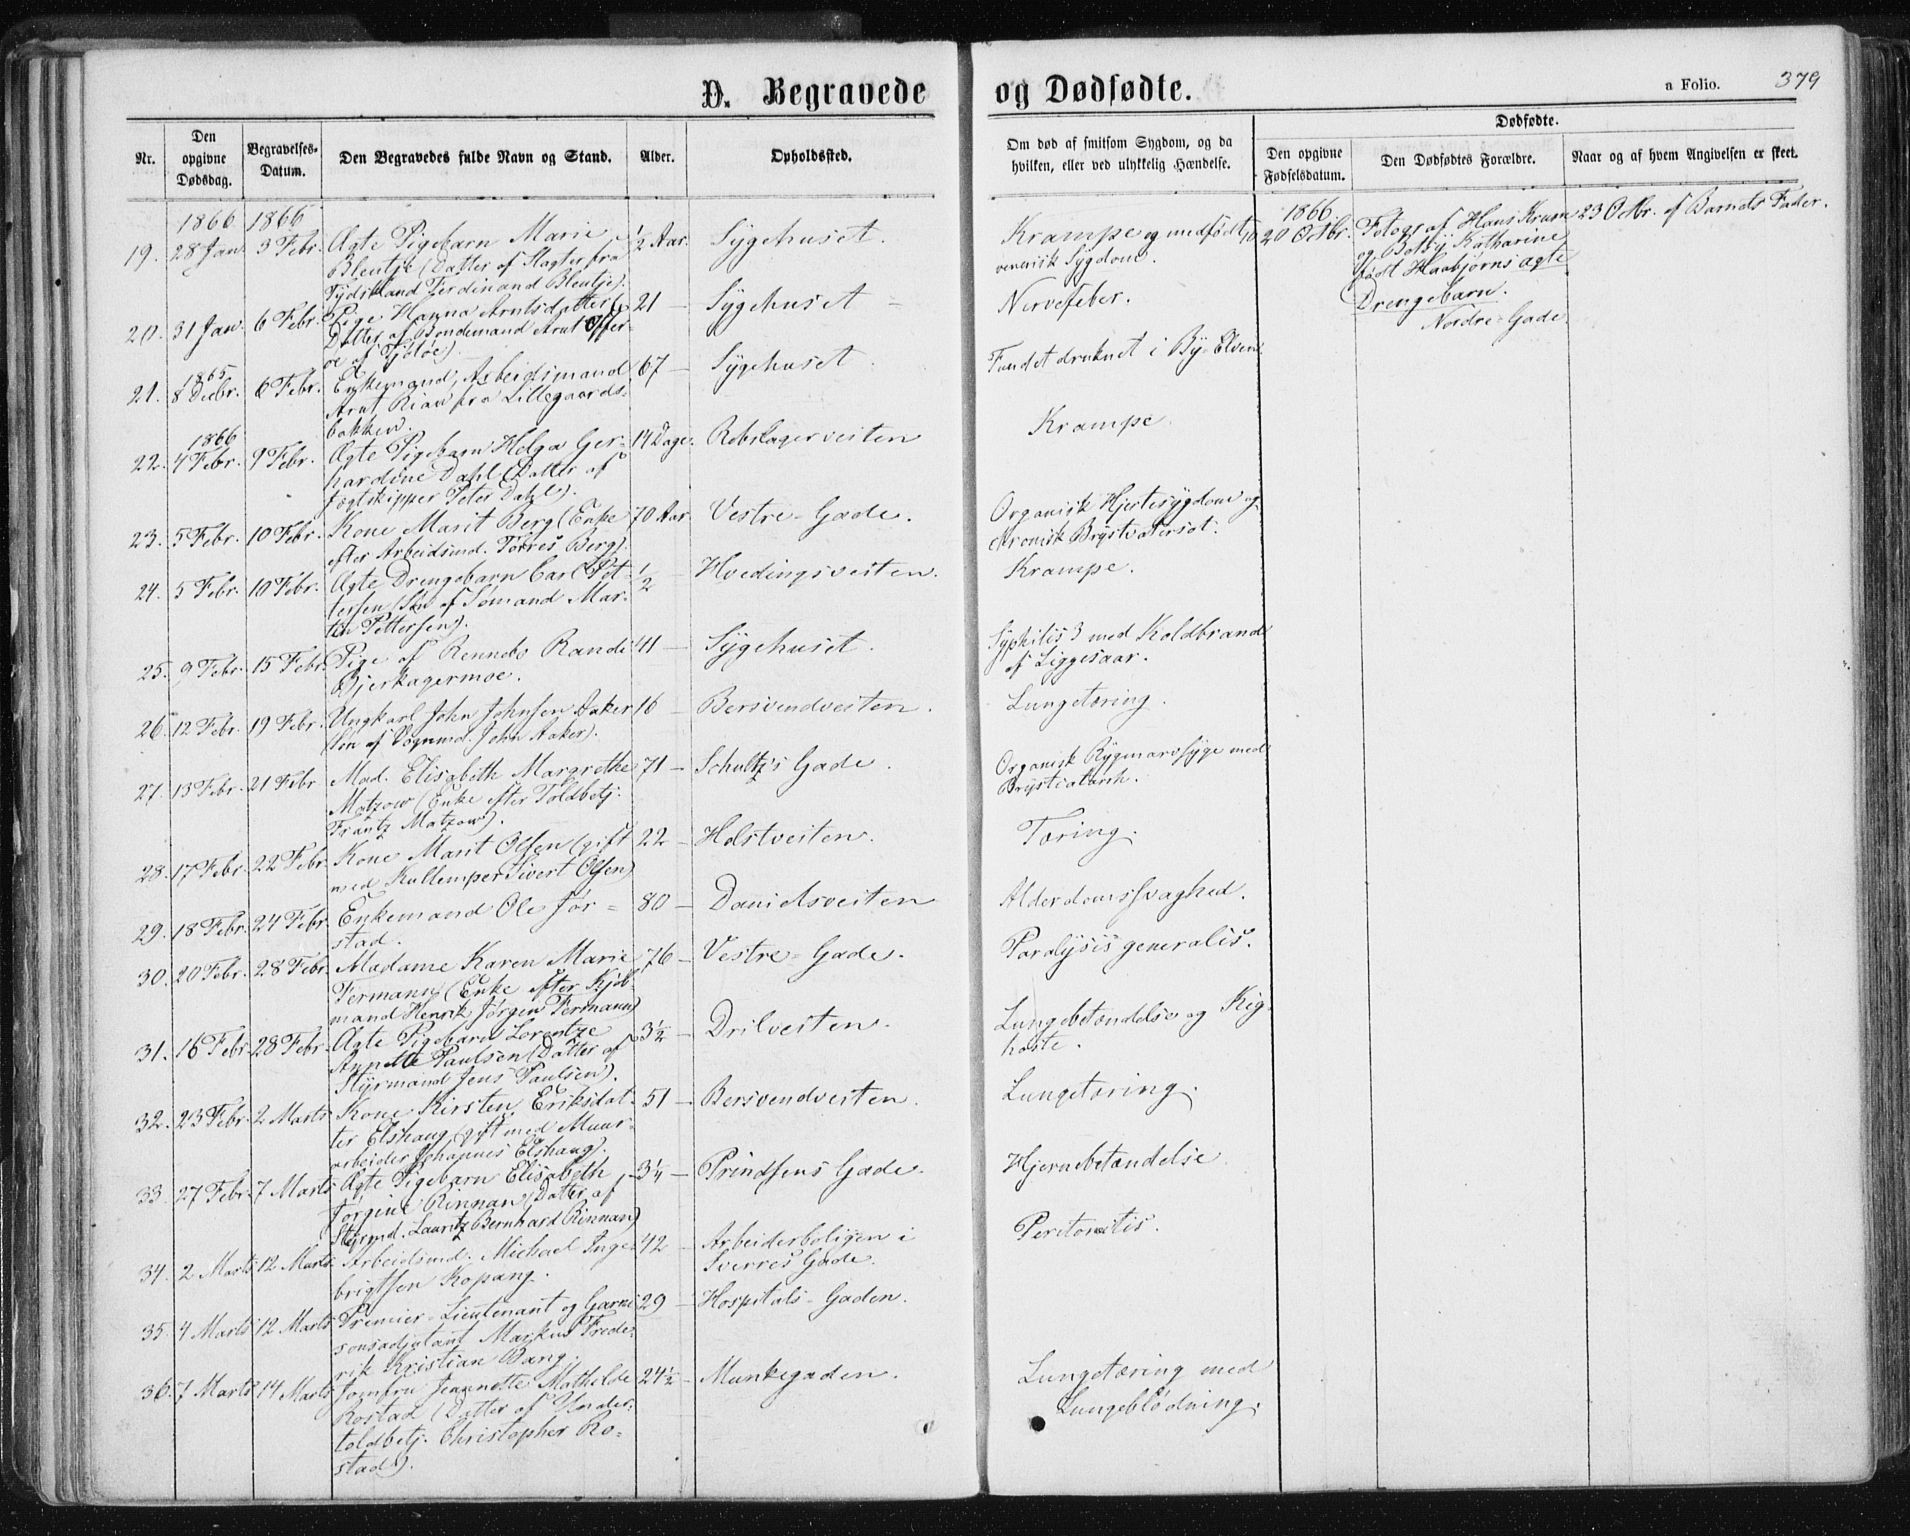 D. Begravede og Dødfødte.
a Folio. 379
Nr.
Den opgivne Dødsdag.
Begravelses-Datum.
Den Begravedes fulde Navn og Stand.
Alder.
Opholdssted.
Om død af smitsom Sygdom, og da hvilken, eller ved ulykkelig Hændelse.
Dødfødte.
Den opgivne Fødselsdatum.
Den Dødfødtes Forældre.
Naar og af hvem Angivelsen er skeet.
1866 1866
19. 28 Jan. 3 Febr. Ægte Pigebarn Marie ½ Aar. Sygehuset. Krampe og medfødt
Bleutje (Datter af Slagter fra venerisk Sygdom.
Tydskland Ferdinand Bleutje).
20. 31 Jan. 6 Febr. Pige Hanna Arntsdatter ( 21 — Sygehuset — Nervefeber.
Datter af Bondemand Arnt
af
1865
21. 8 Decbr. 6 Febr. Enkemand, Arbeidsmand 67 — Sygehuset. Fundet druknet i By-Elven
Arnt Rian fra Lillegaards-
bakken.
1866
22. 4 Febr. 9 Febr. Ægte Pigebarn Helga Ger- 14 Dage. Rebslagerveiten Krampe
hardine Dahl (Datter af
Jægtskipper Peter Dahl).
23. 5 Febr. 10 Febr. Kone Marit Berg (Enke 70 Aar. Vestre-Gade. Organisk Hjertesygdom og
efter Arbeidsmd. Torres Berg). chronisk Brystvatersot.
24. 5 Febr. 10 Febr. Ægte Drengebarn Carl Pet- ½ — Hvedingsveiten. Krampe.
tersen (Søn af Sømand Mar-
tin Pettersen).
25. 9 Febr. 15 Febr. Pige af Rennebo Randi 41 — Sygehuset. Syphilis 3 med Koldbrand
Bjerkagermoe. af Liggesaar.
26. 12 Febr. 19 Febr. Ungkarl John Johnsen Aaker 16 — Bersvendveiten. Lungetæring.
(Søn af Vognmd. John Aaker).
27. 13 Febr. 21 Febr Mad. Elisabeth Margrethe 71 — Schultz's Gade. Organisk Rygmarvssyge med
Matzow (Enke efter Toldbetj. Brystcatarrh.
Frantz Matzow).
28. 17 Febr. 22 Febr. Kone Marit Olsen (gift 22 — Holstveiten. Tæring.
med Kullemper Sivert Olsen)
29. 18 Febr. 24 Febr. Enkemand Ole Jør- 80 — Danielsveiten Alderdomssvaghed.
stad.
30. 20 Febr. 28 Febr. Madame Karen Marie 76 — Vestre-Gade. Paralysis generalis.
Fermann (Enke efter Kjøb-
mand Henrik Jørgen Fermann)
31. 16 Febr. 28 Febr. Ægte Pigebarn Lorentze 3½ — Drilveiten. Lungebetændelse og Kig-
Annette Paulsen (Datter af hoste.
Styrmand Jens Paulsen).
32. 23 Febr. 2 Marts Kone Kirsten Eriksdat- 51 — Bersvendveiten. Lungetæring.
ter Elshaug (gift med Muur-
arbeider Johannes Elshaug).
33. 27 Febr. 7 Marts Ægte Pigebarn Elisabeth 3¼ — Prindsens Gade. Hjernebetændelse.
Jorgine Rinnan (Datter af
Styrmd. Lauritz Bernhard Rinnan)
34. 2 Marts 12 Marts. Arbeidsmd. Michael Inge- 42 — Arbeiderboligen i Peritonitis.
brigtsen Kopang. Sverres Gade.
35. 4 Marts 12 Marts Premier-Lieutenant og Garni- 29 — Hospitals-Gaden.
sonsadjutant Markus Frede-
rik Kristian Bang.
36. 7 Marts 14 Marts Jomfru Jeannette Mathilde 24½ — Munkegaden. Lungetæring med
Rostad (Datter af Under- Lungeblødning.
toldbetj. Christopher Ro-
stad).
1866
20 Octbr. Fotograf Hans Krum 23 Octbr. af Barnets Fader.
og Betsy Katharine
født Haabjørns ægte
Drengebarn.
Nordre-Gade.